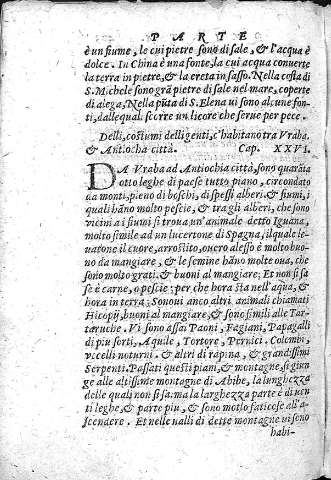 PARTE
è un fiume, le cui pietre sono di sale, & l'acqua è
dolce. In China è una fonte, la cui acqua conuerte
la terra in pietre, & la creta in sasso. Nella costa di
S. Michele sono grā pietre di sale nel mare, coperte
di alega, Nella pūta di S. Elena ui sono alcune fon-
ti, dallequal scorre un licore che serue per pece.
Delli, costumi delli genti, c'habitano tra Vraba.
& Antiocha città. Cap. XXVI.
DA Vraba ad Antiochia città, sono quarāta
otto leghe di paese tutto piano, circondato
da monti, pieno di boschi, di spessi alberi. & fiumi, i
quali hāno molto pescie, & tra gli alberi, che sono
vicini a i fiumi si troua un'animale detto Iguana,
molto simile ad un lucertone di Spagna, il quale le-
uatone il cuore, arrostito, ouero alesso è molto buo-
no da mangiare, & le femine hāno molte oua, che
sono molto grati. & buoni al mangiare; Et non si sa
se è carne, o pescie: per che hora sta nell'aqua, &
hora in terra: Sonoui anco altri animali chiamati
Hicopÿ, buoni al mangiare, & sono simili alle Tar-
taruche. Vi sono assai Paoni, Fagiani, Papagalli
di piu sorti, Aquile, Tortore, Pernici. Colombi,
vccelli noturni, & altri di rapina, & grandissimi
Serpenti. Passati questi piani, & montagne, si giun
ge alle altissime montagne di Abibe, la lunghezza
delle quali non si sa. ma la larghezza parte è di uen
ti leghe, & parte piu, & sono molto faticose all'a-
scendere. Et nelle ualli di dette montagne ui sono
habi-